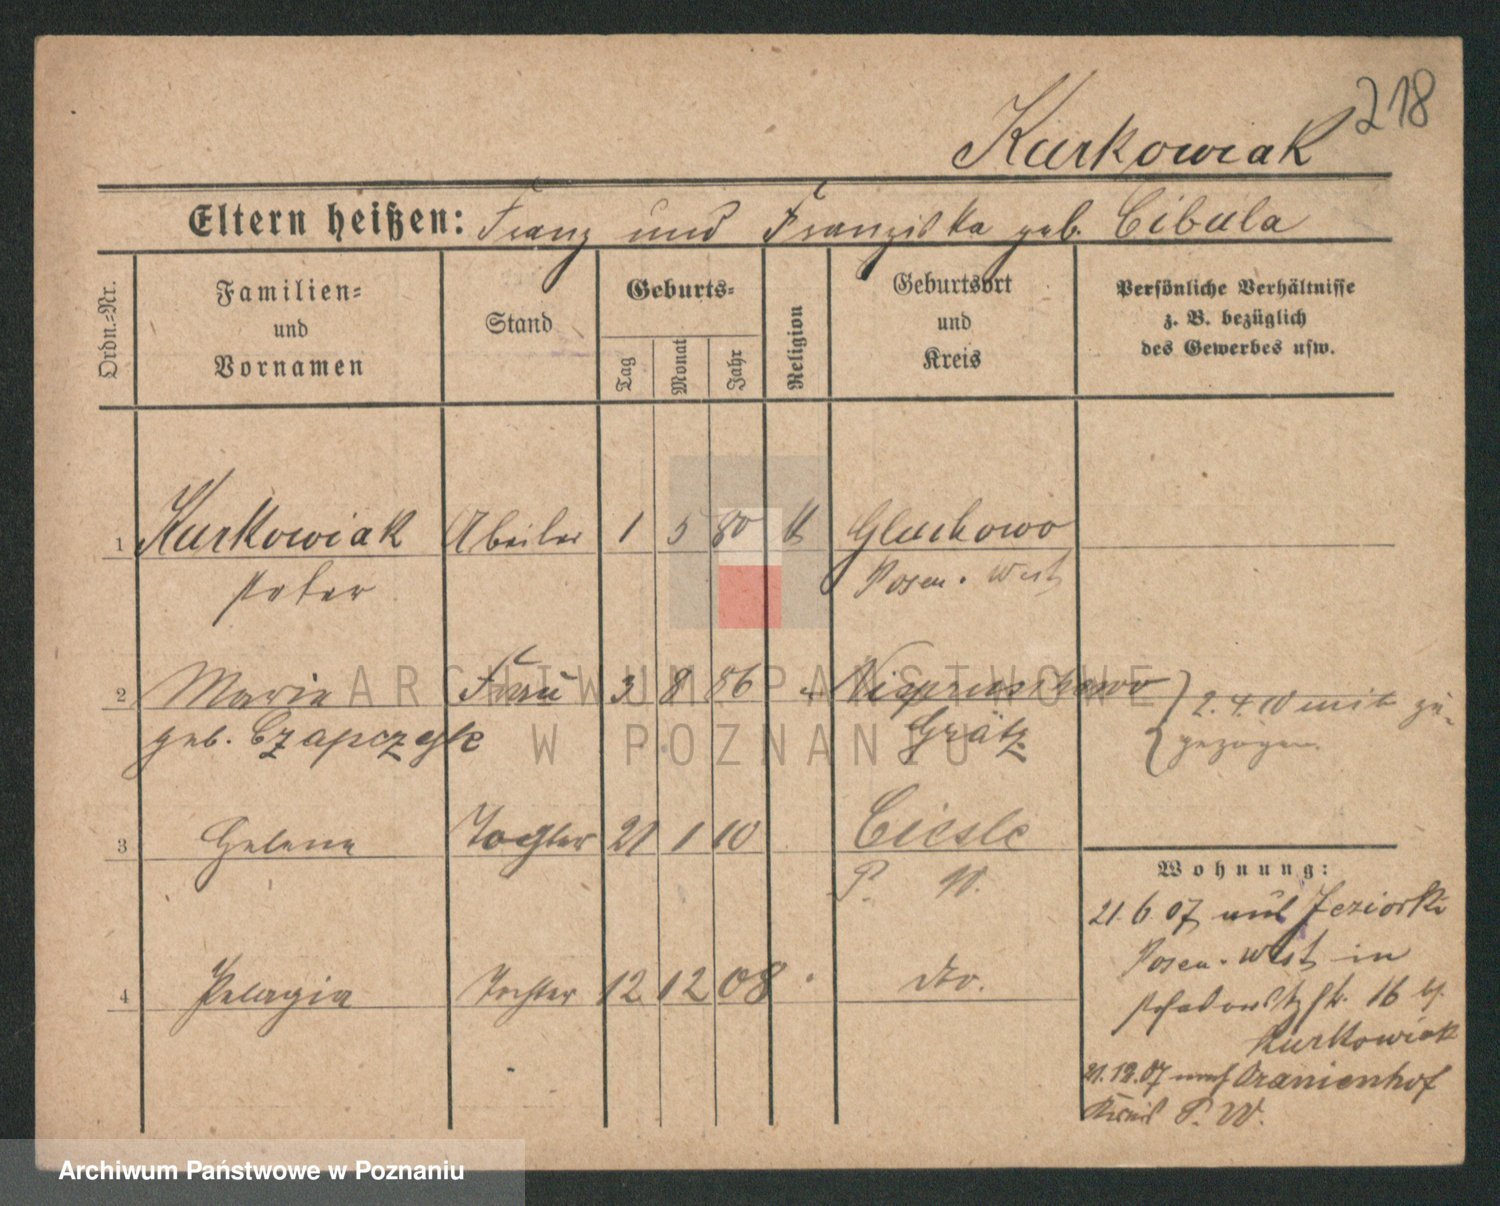 218
Kurkowiak
Eltern heißen: Franz und Franziska geb. Cibula
Ordn.-Nr.
Familien-
und
Vornamen
Stand
Geburts-
Tag
Monat
Jahr
Religion
Geburtsort
und
Kreis
Persönliche Verhältnisse
z. B. bezüglich
des Gewerbes usw.
1 Kurkowiak Arbeiter 1 5 80 k Gluchowo
Peter Posen. West
2 Maria Frau 3 8 86 "
geb. Czapczyk Grätz
} 2. 4. 10 mit zu-
gezogen.
3 Helena Tochter 21 1 10 Ciesle
P. W.
4 Pelagia Tochter 12 12 08 " dto.
Wohnung:
21. 6. 07 aus Jeziorki
Posen. West in
16 bj.
Kurkowiak
21.12.07 nach Oranienhof
Kreis P. W.
ARCHIWUM PAŃSTWOWE
W POZNANIU
Archiwum Państwowe w Poznaniu